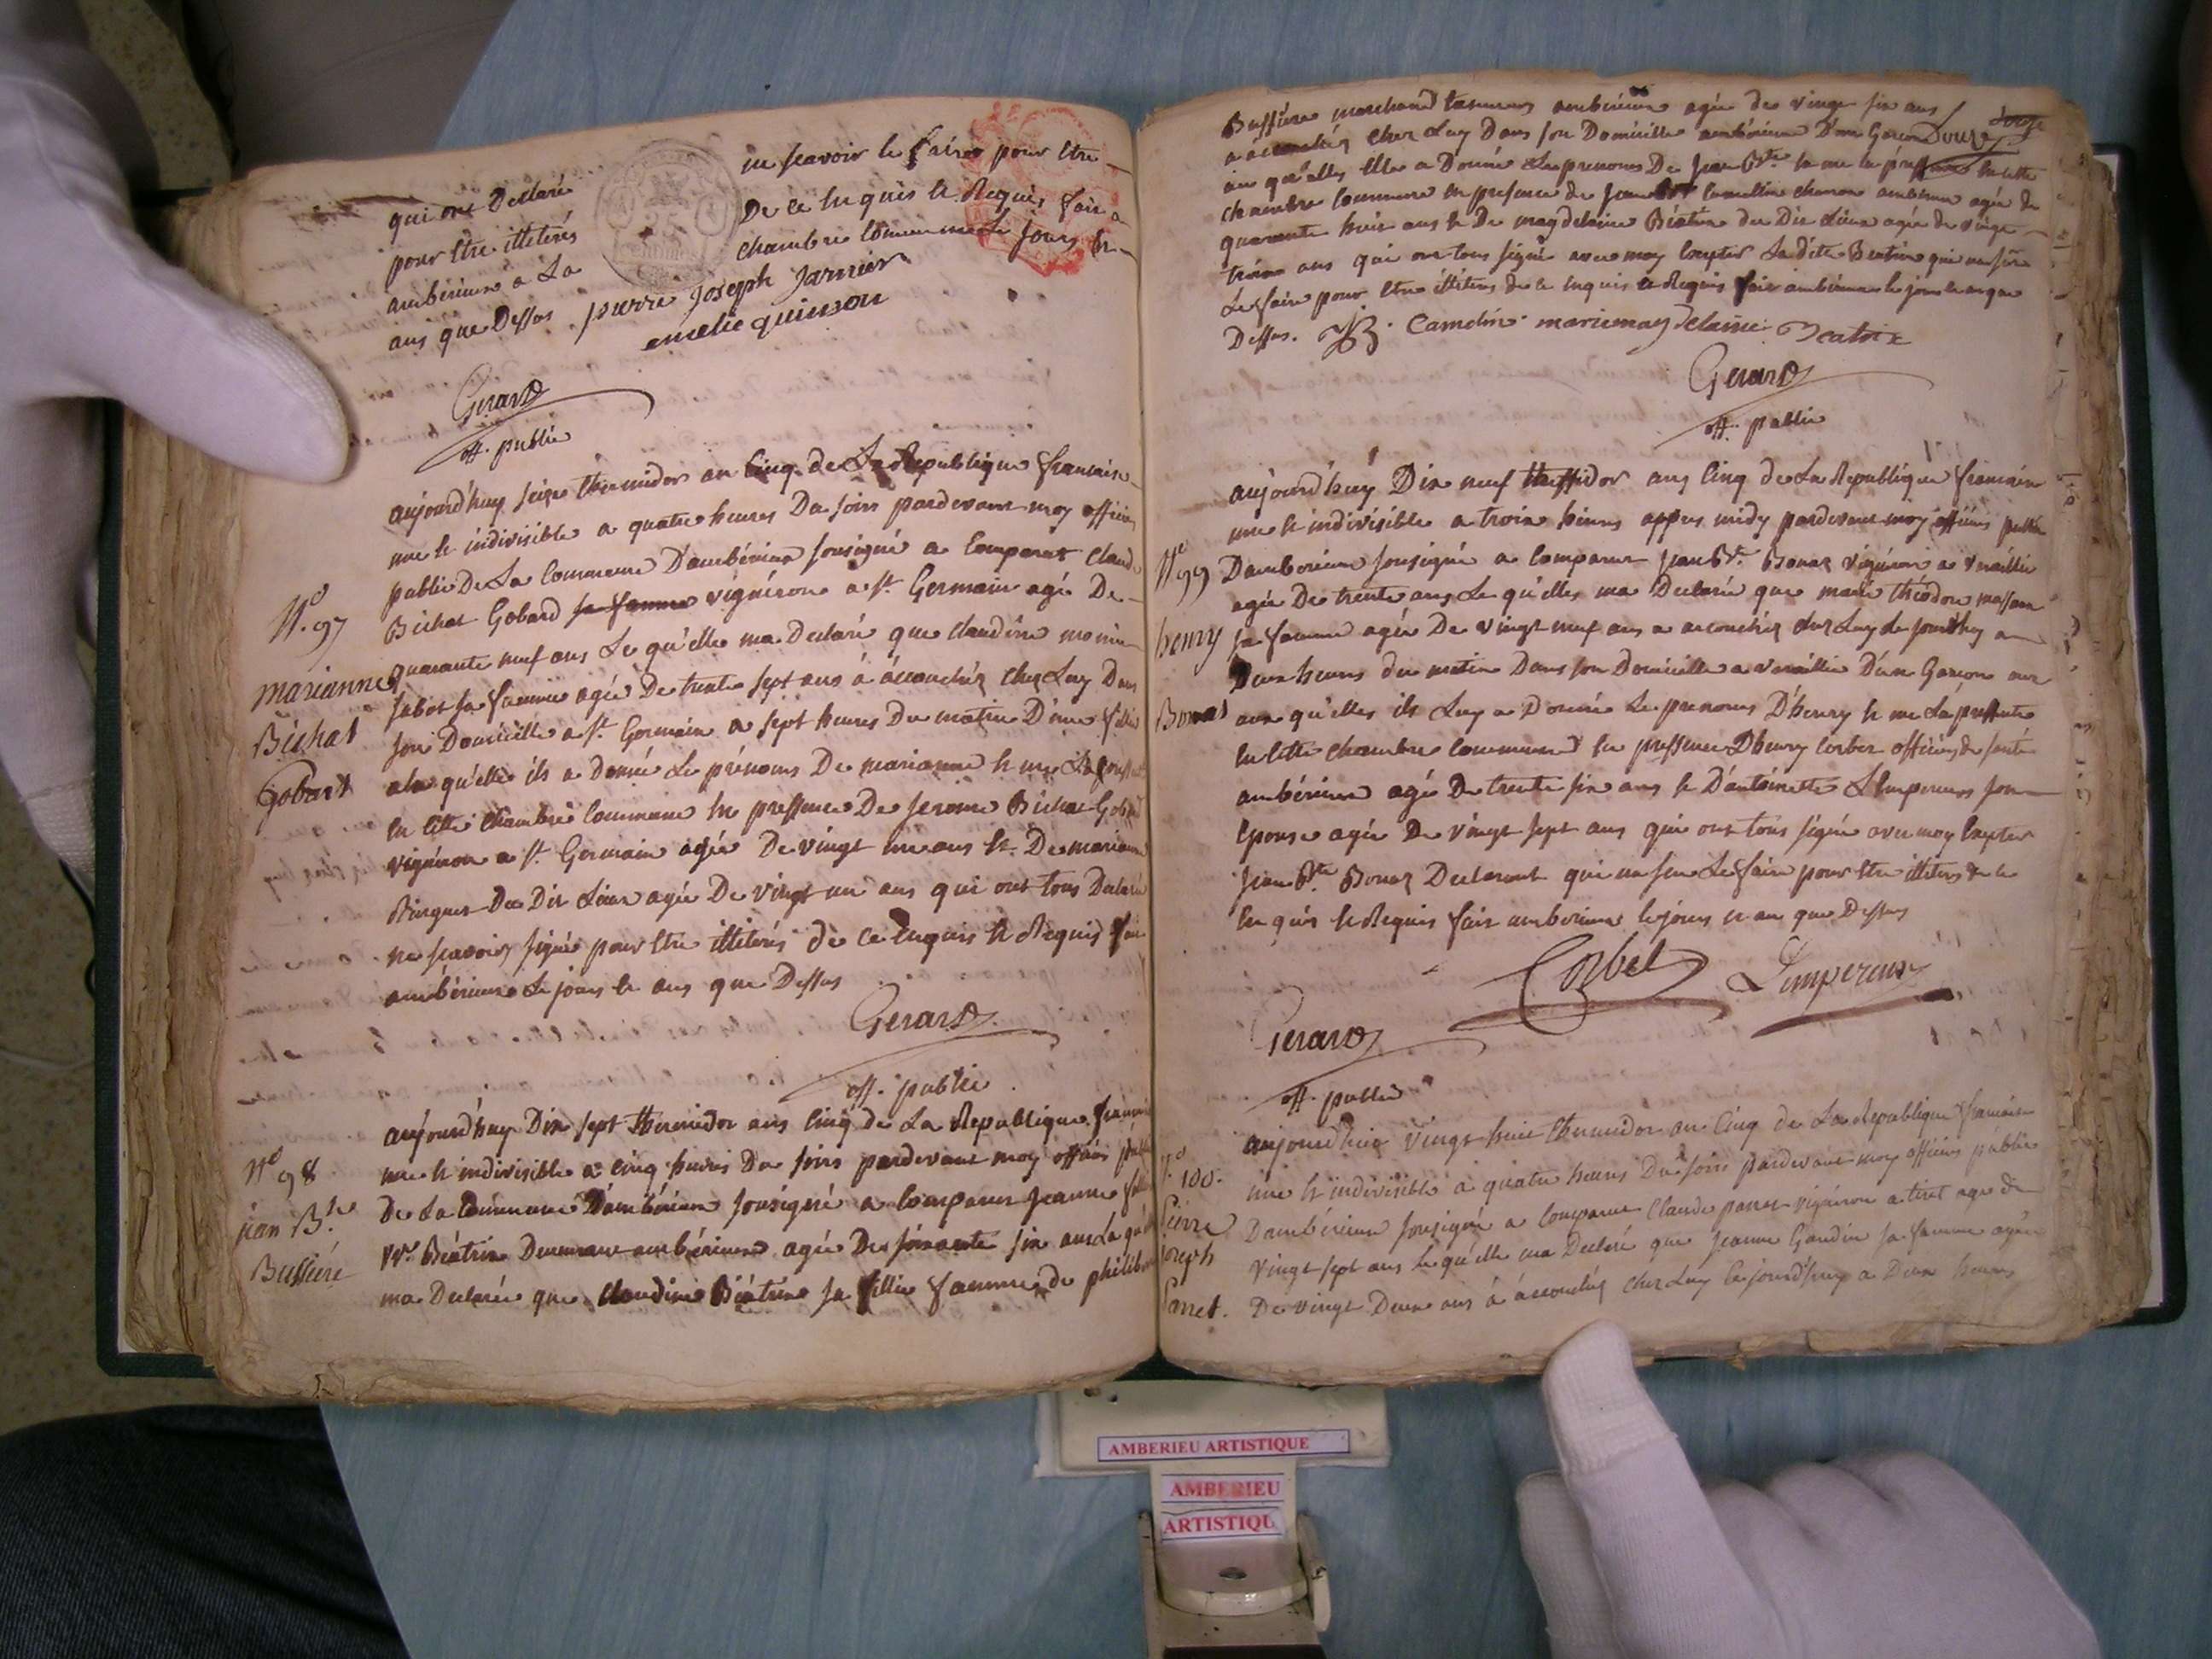 qui ont Declaré ne scavoir le faire pour Etre
pour Etre illiterés De ce Enquis et Requis fait a
ambérieux a La chambre commune Le jours En
ans que Dessus pierre joseph Jarnier
emelie quinson
Gerard
off. public
aujourd'huy seize thermidor an Cinq de La Republique francaise
une et indivisible a quatre heures Du soirs pardevant moy officier
public De La Commune D'ambérieux sousigné a Comparut Claude
N.° 97
Bichat Gobard sa famme vignérons a St. Germain agé De
quarante neuf ans Le qu'elle ma Declaré que Claudine
marianne
sabot sa famme agée De trente sept ans à accouchéz chez Luy Dans
Bichat
son Domicille a St. Germain a sept heures Du matin D'une fillie
Gobart
a la qu'elle ils a donné Le prénoms De marianne et me La
En Cette Chambre Commune En pressence De jerome Bichat Gobard
vignéron a St. Germain agée De vingt un ans et De marianne
Du Dit Lieux agée De vingt un ans qui ont tous Declaré
ne scavoirs signé pour Etre illiterés de ce Enquis et Requis fait
ambérieux Le jours et ans que Dessus
Gerard
off. public
aujourd'huy Dix sept thermidor ans Cinq de La Republique francaise
N.° 98
une et indivisible a cinq heures Du soirs pardevant moy officier public
De La Commune D'ambérieux sousigné a Comparut jeanne
jean B.te
v.ve Béatrix Demeurant ambérieux agée De soixante six ans La qu'elle
Bussiere
ma Declarée que Claudine Béatrix sa fillie famme de philibert
Bussiere marchand ambérieux agée de vingt six ans
a accouchéz chez Luy Dans son Domicille ambérieux D'un Garcon
au qu'elles Elle a Donné Le prenoms De jean B.te et me La En cette
chambre commune En presence de jean charon ambérieux agée de
quarante huit ans et De magdelaine Béatrix du Dit Lieux agée de vingt
trois ans qui ont tous signé avec moy Excepter La ditte Beatrix qui na sçu
Le faire pour Etre illiterés de ce Enquis et Requis fait ambérieux le jour et an que
Dessus. JB. Camelin mariemagdelaine Beatrix
Gerard
off. public
aujourd'huy Dix neuf thermidor ans Cinq de La Republique francaise
une et indivisible a trois heures appres midy pardevant moy officier public
N.° 99
Damberieux sousigné a Comparut jean B.te Bonaz vignéron a Vareillie
agée De trente ans Le qu'elles ma Declaré que marie théodore
henry
sa famme agée De vingt neuf ans a accouchéz chez Luy ce jourdhuy a
Deux heures du matin Dans son Domicille a Vareillie D'un Garcon
Bonaz
aux qu'elles ils Luy a Donné Le prenoms D'henry et me La pressenté
En Cette Chambre Commune En pressence D'henry Corbet officier de santé
ambérieux agé De trente six ans et D'antoinette Lempereur son
Epouse agée De vingt sept ans qui ont tous signé avec moy Excepter
jean B.te Bonaz Declarant qui na sçu Le faire pour Etre illiterés de ce
En quis et Requis fait amberieux le jours et an que Dessus
Corbet Lempereur
Gerard
off. public
aujourd'huy vingt huit thermidor an Cinq de La Republique francaise
N.° 100.
une et indivisible à quatre heures Du soirs pardevant moy officier public
pierre
D'ambérieux sousigné a Comparut Claude panet vignéron a tiret agé de
joseph
vingt sept ans Le qu'elle ma Declaré que jeanne Gaudin sa famme agée
panet.
De vingt Deux ans à accouchéz chez Luy Cejourd'huy a Deux heures
AMBERIEU ARTISTIQUE
AMBERIEU
ARTISTIQU